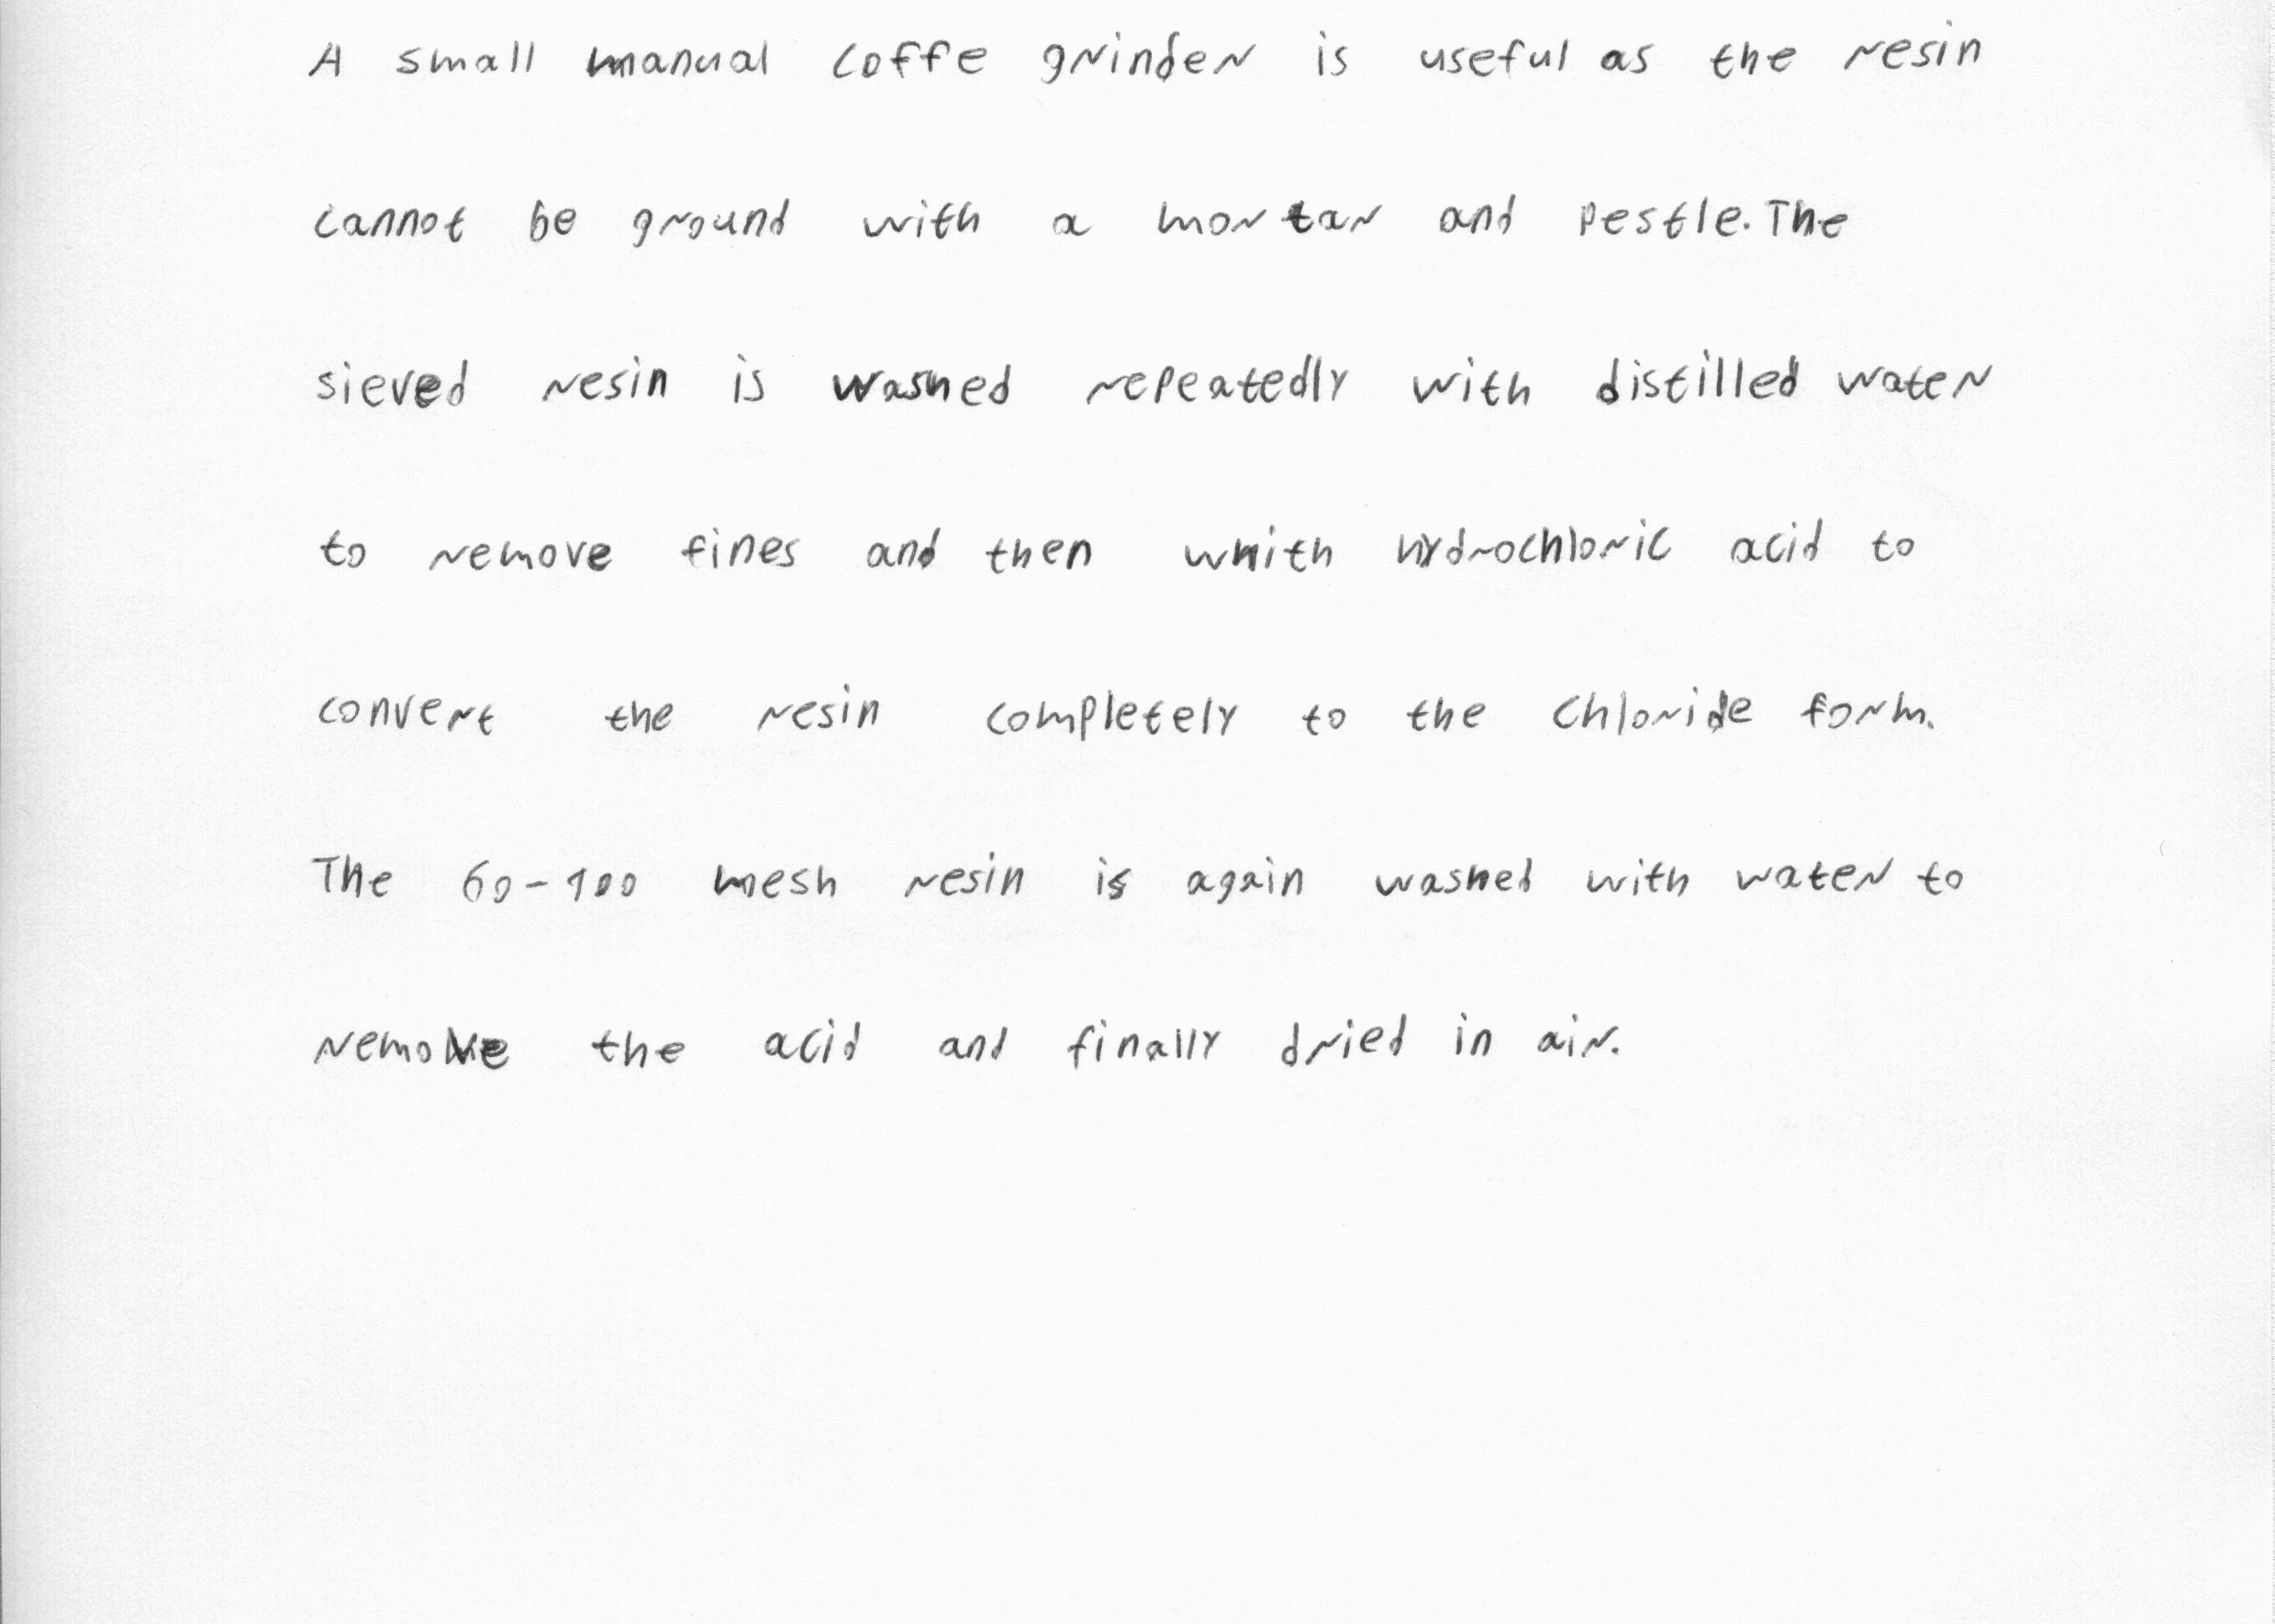 A small manual coffe grinder is useful as the resin
cannot be ground with a mortar and pestle. The
sieved resin is washed repeatedly with distilled water
to remove fines and then whith hydrochloric acid to
convert the resin completely to the chloride form.
The 60-100 mesh resin is again washed with water to
remove the acid and finally dried in air.